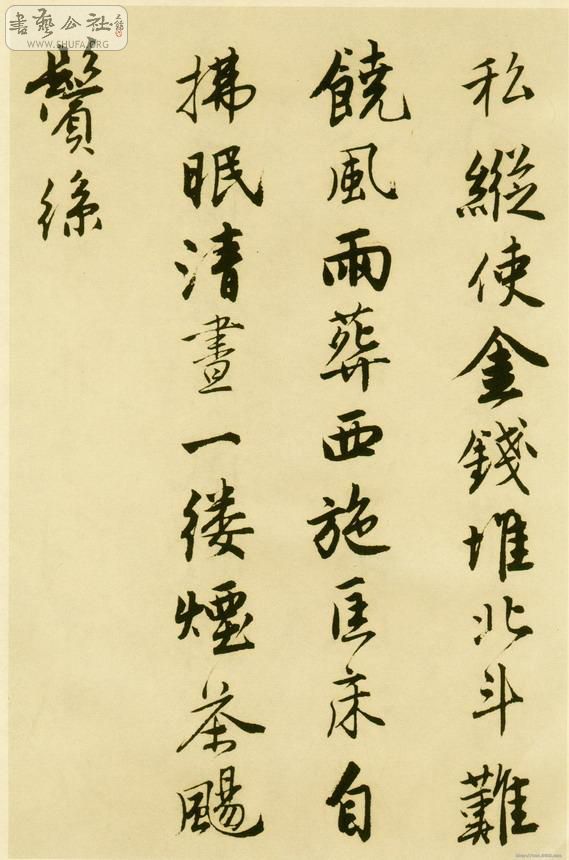 私縱使金錢堆北斗難
饒風雨葬西施匡床自
拂眠清晝一縷煙茶颺
鬢絲
書藝公社
WWW.SHUFA.ORG